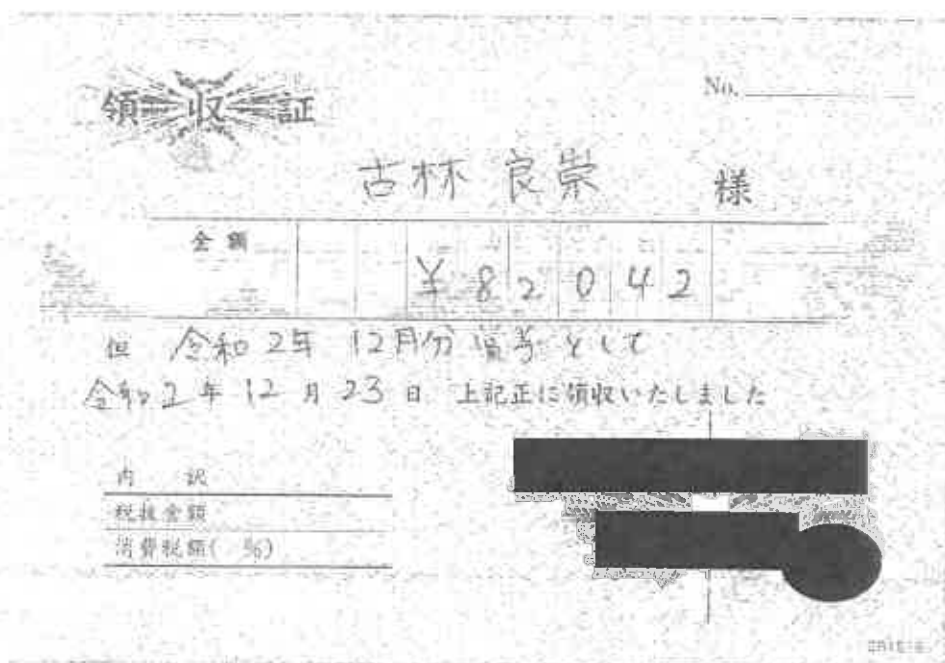 領収証
No.
古林 良崇 様
金額 ¥82042
但 令和2年 12月分 給与として
令和2年12月23日 上記正に領収いたしました
内 訳
税抜金額
消費税額( %)